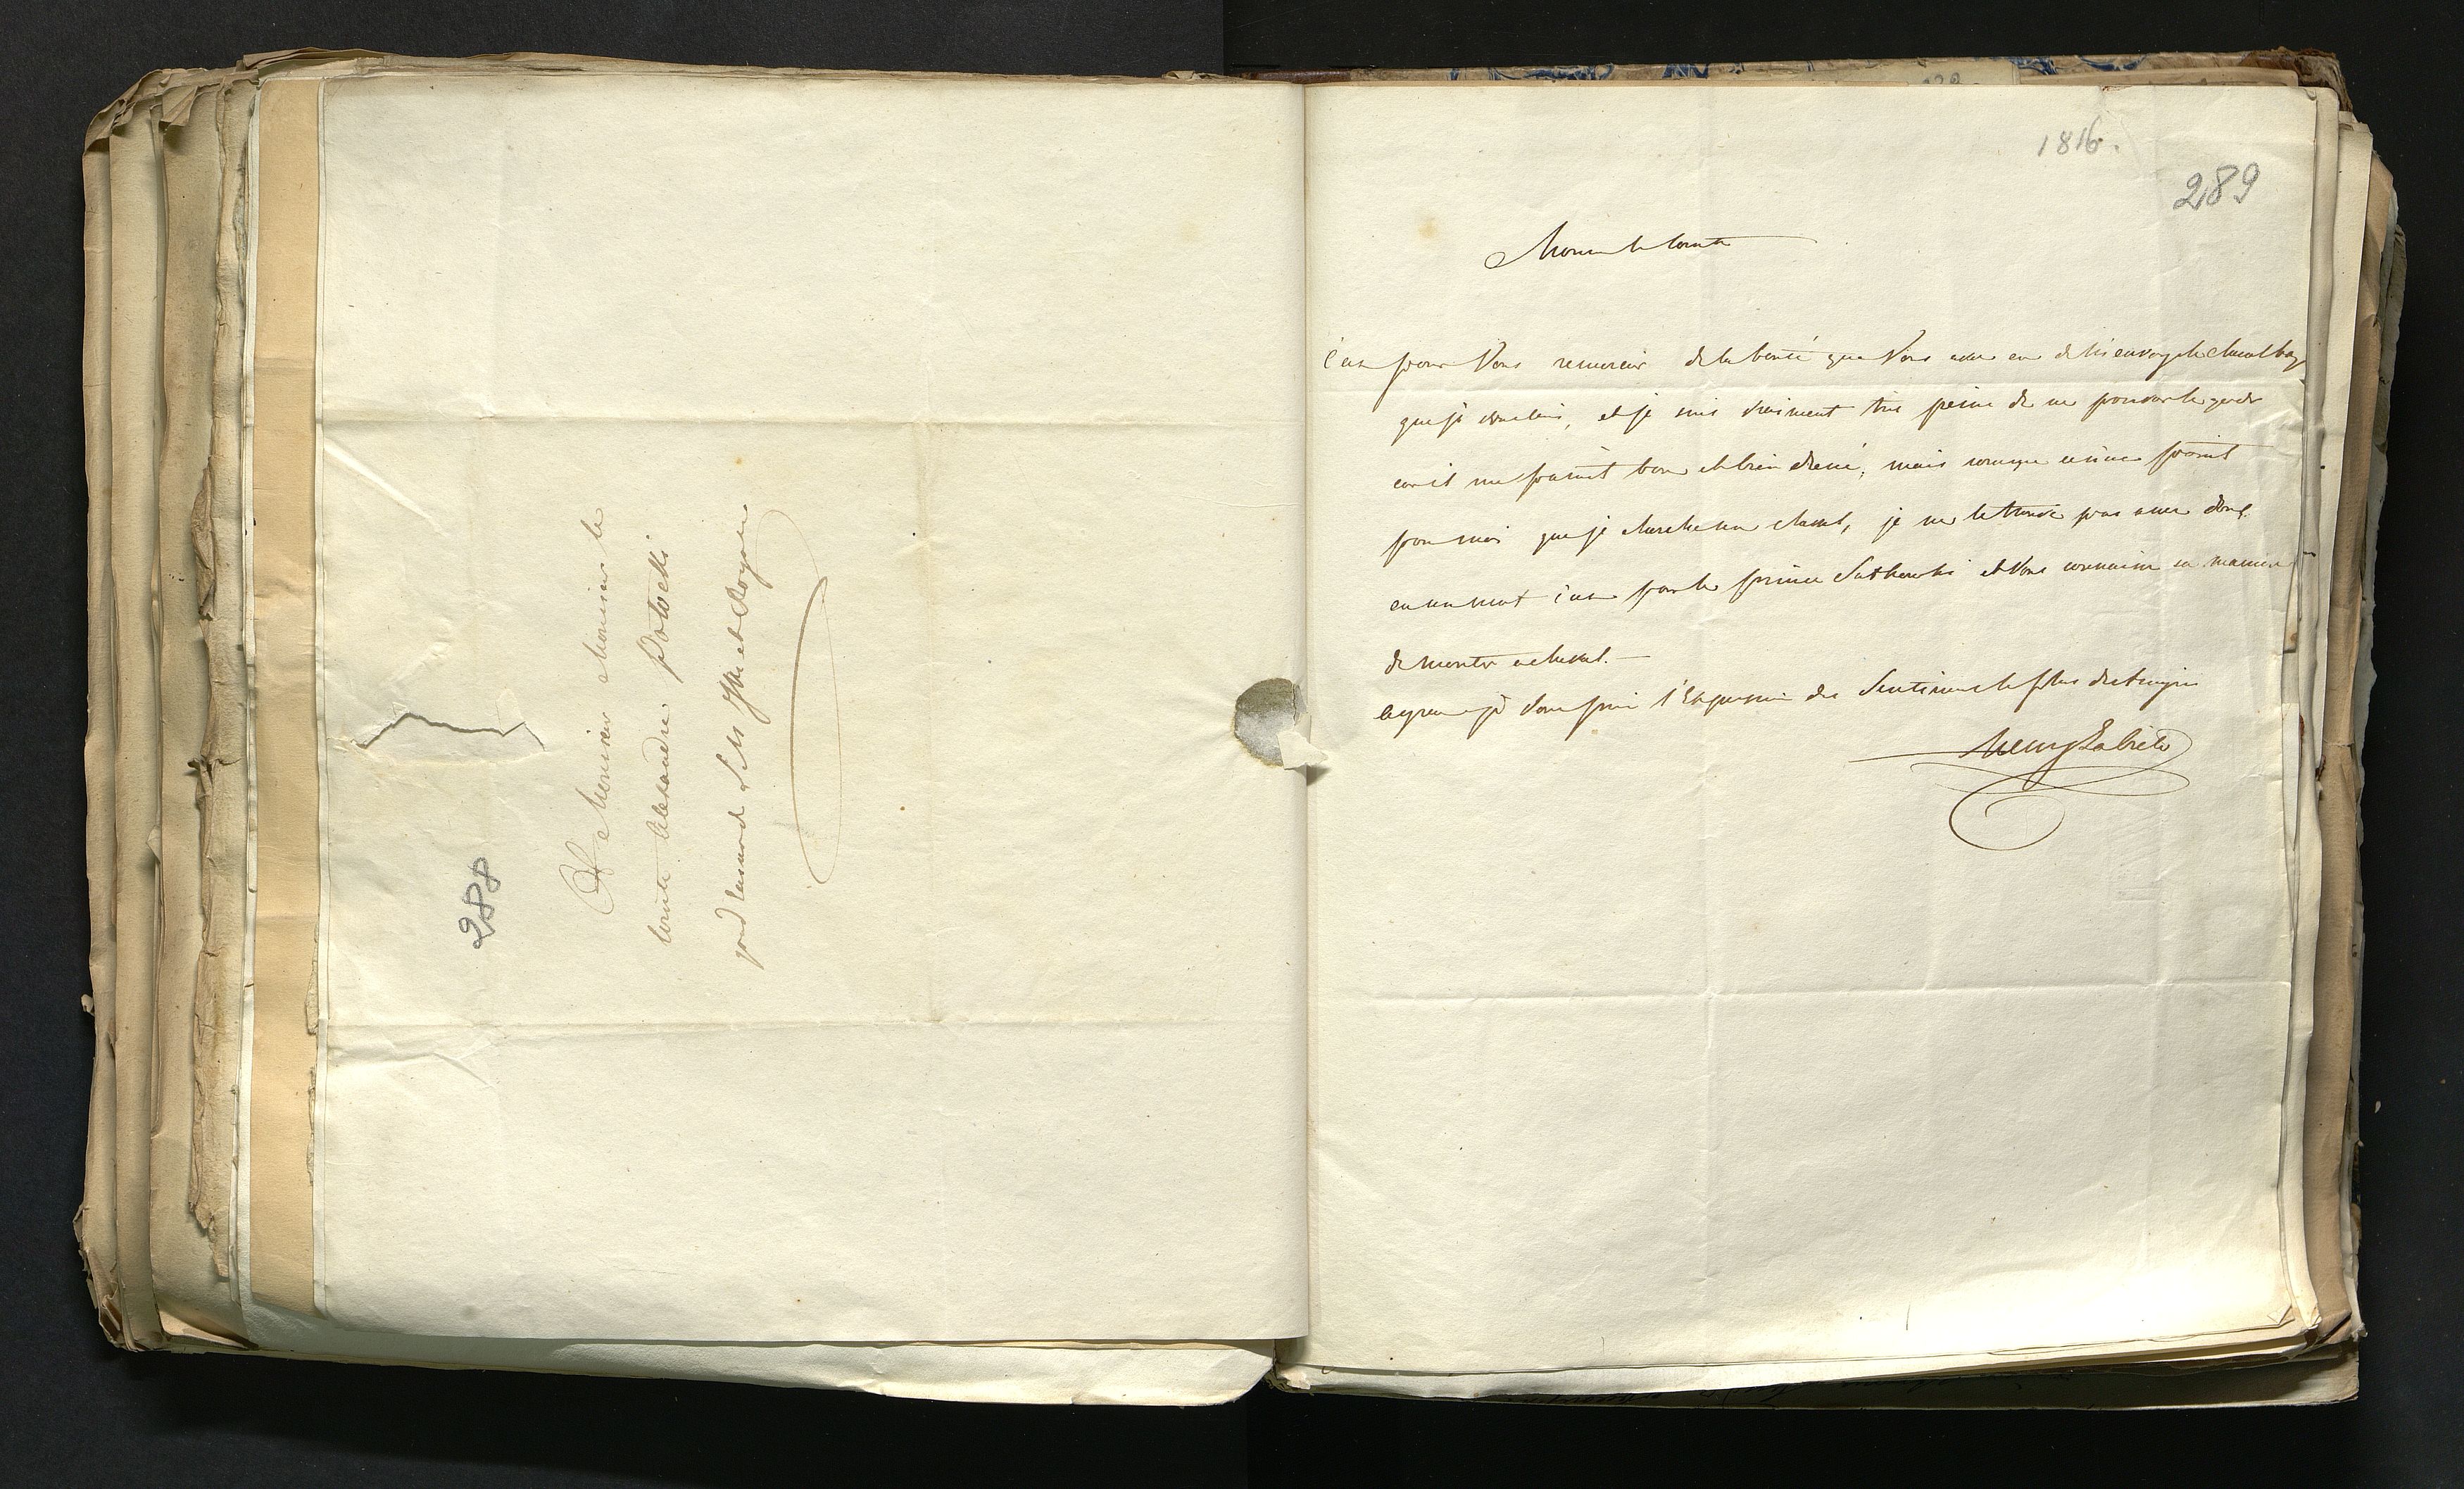 288
A Monsieur Monsieur le
Comte Alexandre Potocki
grand S. M. et Royale
1816.
289
Monsieur le Comte
C'est pour Vous remercier de la bonté que Vous avez eu de m'envoyer le cheval bay
que je et je suis vraiment très peiné de ne pouvoir le garder
car il me parait bon et bien dressé, mais comme ce n'est point
pour moi que je cherche un cheval, je ne le trouve pas assez doux
en un mot c'est pour le prince Sulkowski et Vous connaissez sa maniere
de monter a cheval.—
Agreez je Vous prie l'Expression des Sentimens les plus distingués
Henry Łubieński